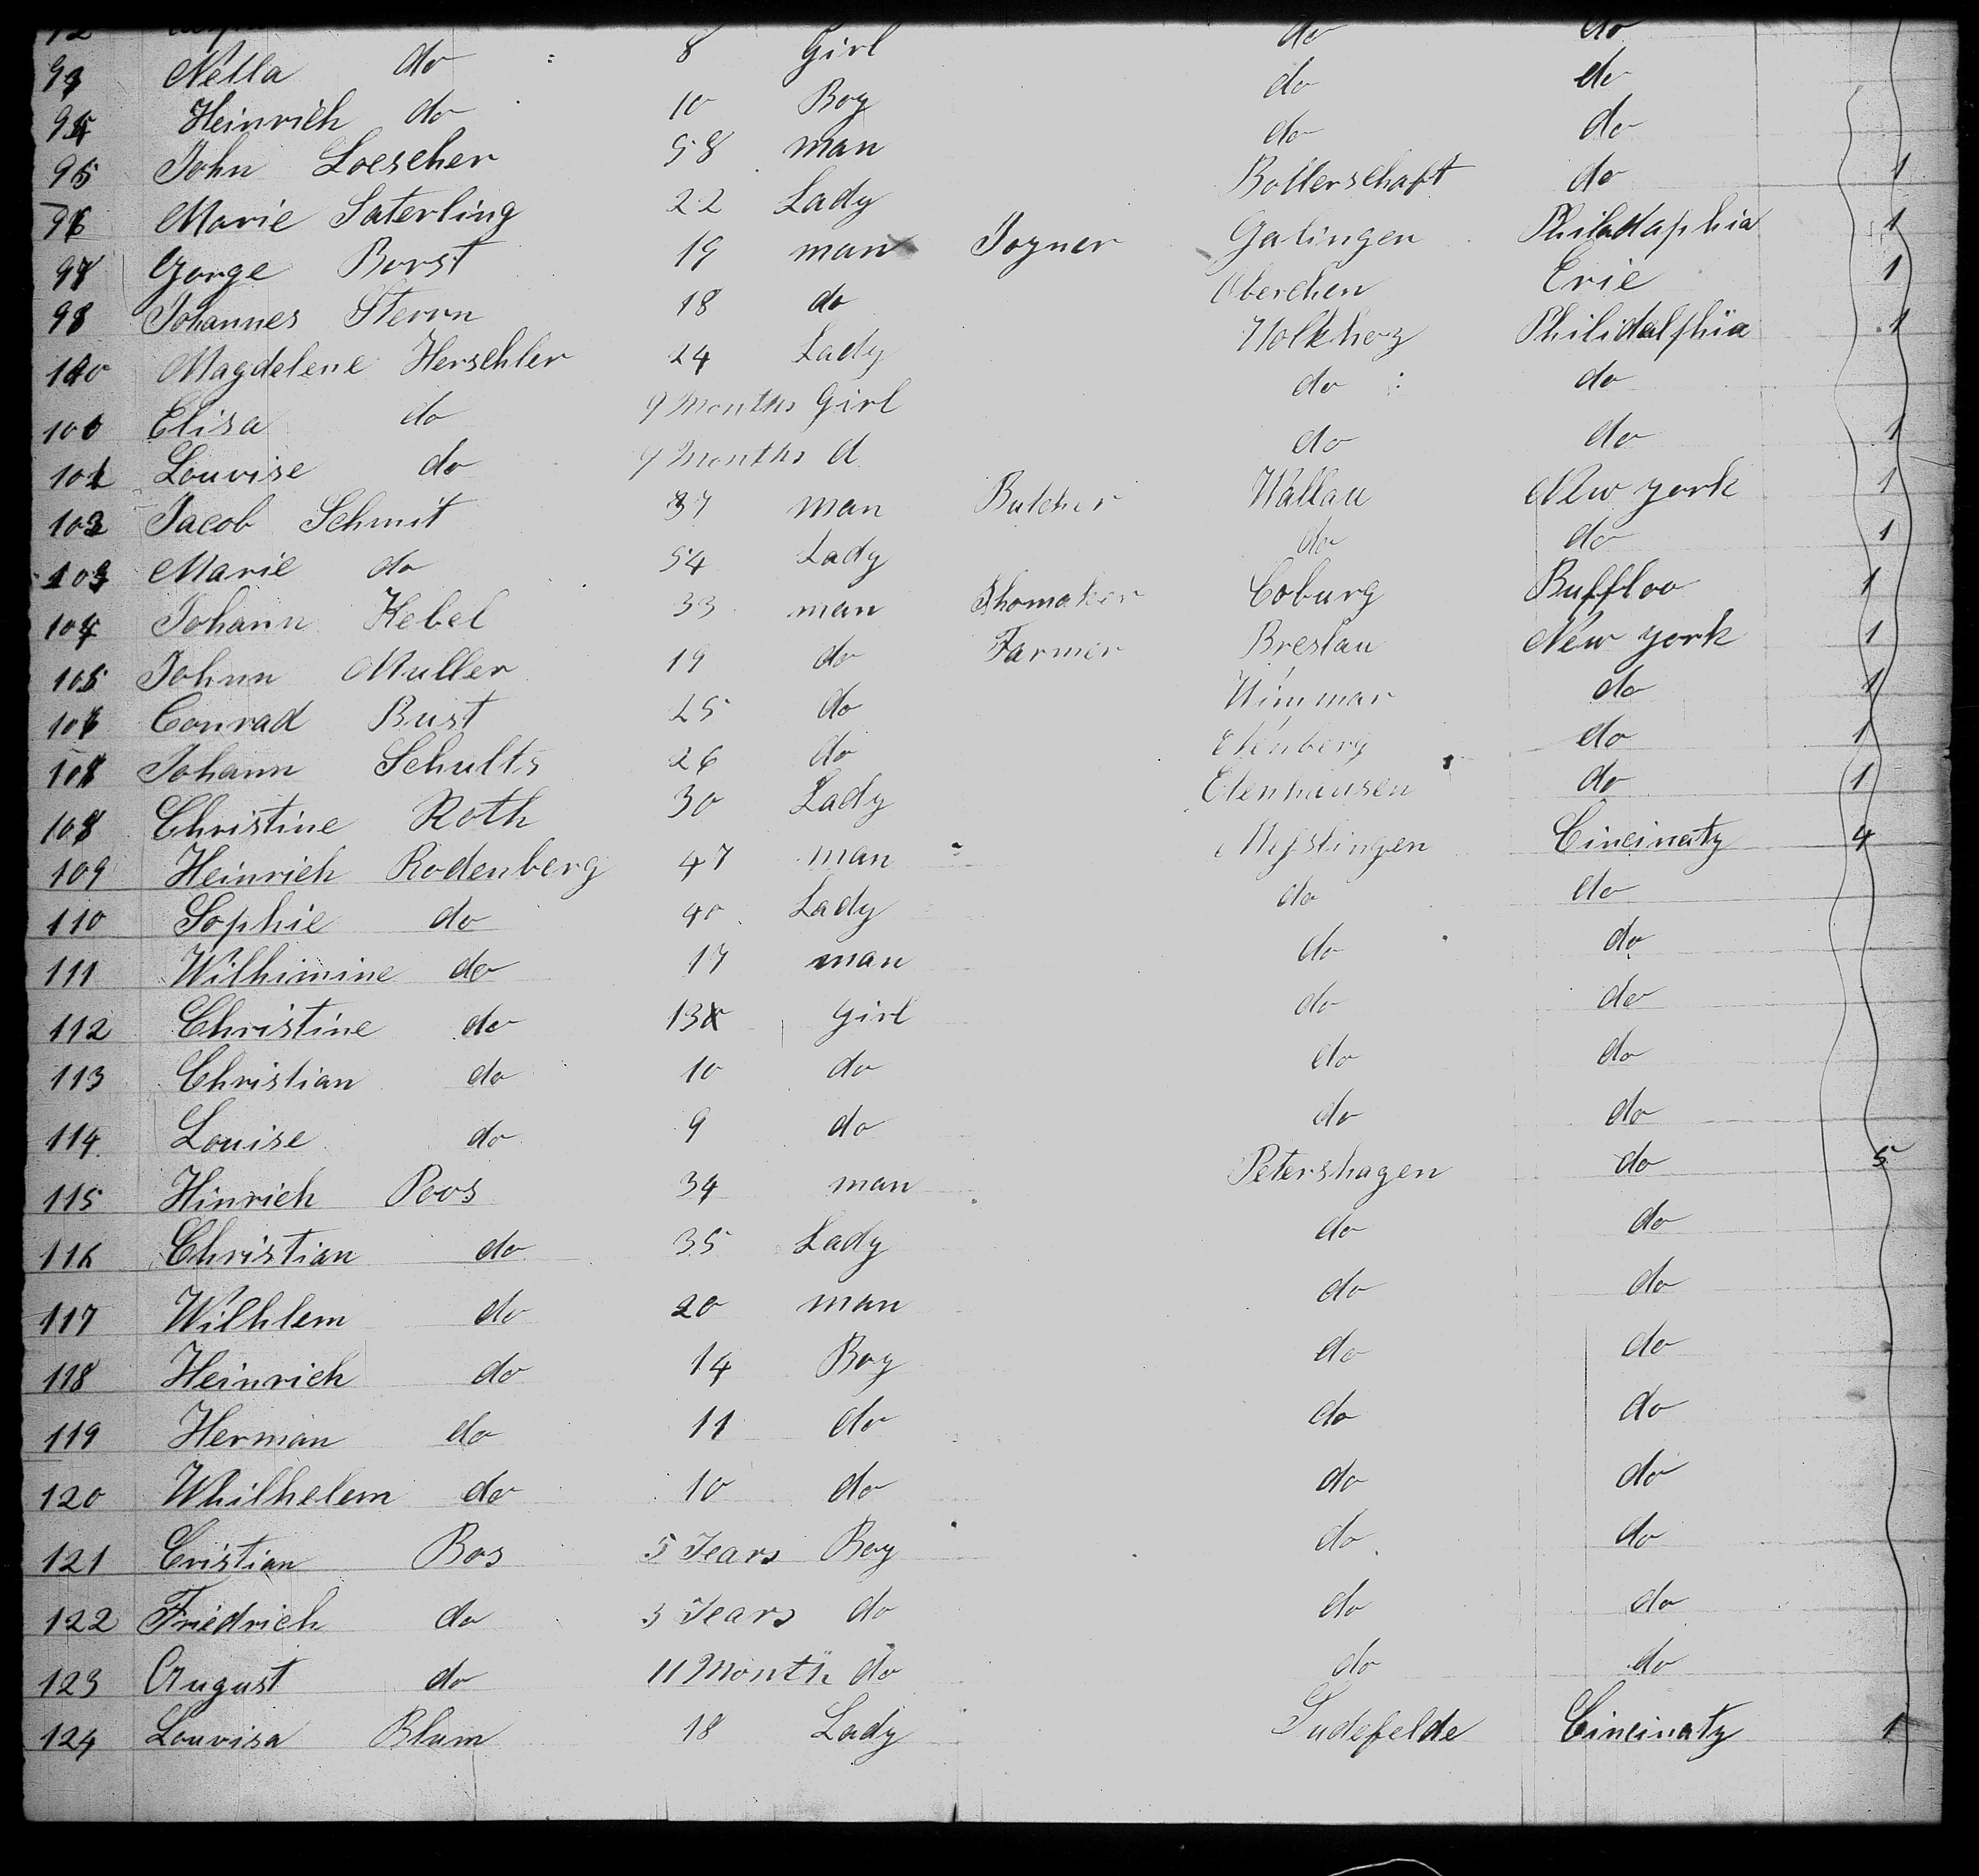 do do
93 Nella do 8 Girl do do
94 Heinrich do 10 Boy do do
95 John Loescher 58 man Bollerschaft do 1
96 Marie Saterling 22 Lady Galingen Philadaphia 1
97 Gorge Borst 19 man Joyner Oberchen Erie 1
98 Johannes Sterrn 18 do Holkhoz Philidalphia 1
100 Magdelene Herschler 24 Lady do do
100 Elisa do 9 Months Girl do do 1
101 Louvise do 9 Months d
102 Jacob Schmit 37 man Butcher Wallau New york 1
103 Marie do 54 Lady do do 1
104 Johann Kebel 33 man Shomaker Coburg Buffloo 1
105 Johnn Muller 19 do Farmer Breslau New york 1
106 Conrad Bust 25 do Wimmar do 1
108 Johann Schults 26 do Etenberg do 1
108 Christine Roth 30 Lady Etenhausen do 1
109 Heinrich Rodenberg 47 man Cincinaty 4
110 Sophie do 40 Lady do do
111 Wilhimine do 17 man do do
112 Christine do 13 girl do do
113 Christian do 10 do do do
114 Louise do 9 do do do
115 Hinrich Poos 34 man Petershagen do 5
116 Christian do 35 Lady do do
117 Wilhlem do 20 man do do
118 Heinrich do 14 Boy do do
119 Herman do 11 do do do
120 Whilhelem do 10 do do do
121 Cristian Bos 5 Years Boy do do
122 Friedrich do 3 Years do do do
123 August do 11 Month do do do
124 Louvisa Blum 18 Lady Sudefelde Cincinaty 1